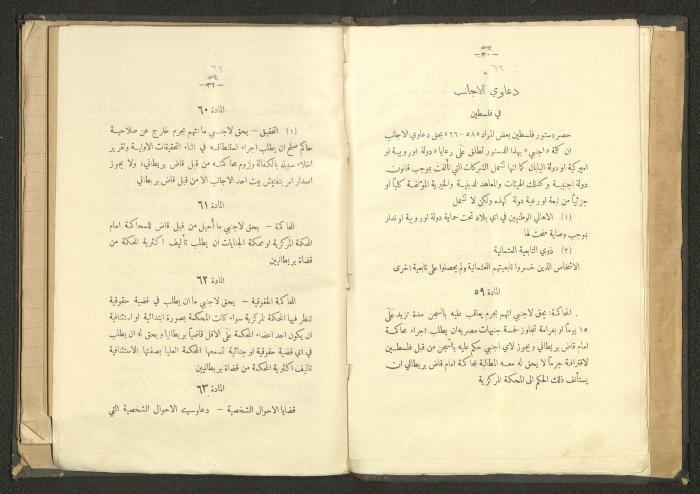 — ٣٠ —
دعاوي الاجانب
في فلسطين
حصر دستور فلسطين بعض المواد «٥٨ — ٦٦» بحق دعاوي الاجانب
ان كلمة «اجنبي» بهذا الدستور تطلق على رعايا «دولة اوروبية او
اميركية او دولة اليابان كما انها تشمل الشركات التي تألفت بموجب قانون
دولة اجنبية وكذلك الهيئات والمعاهد الدينية والخيرية المؤلفة كلياً او
جزئياً من تبعة او رعية دولة كهذه ولكن لا تشمل
(١) الاهالي الوطنيين في اي بلاد تحت حماية دولة اوروبية او تدار
بموجب وصاية منحت لها
(٢) ذوي التابعية العثمانية
الاشخاص الذين خسروا تابعيتهم العثمانية ولم يحصلوا على تابعية اخرى
المادة ٥٩
المحاكمة: يحق لاجنبي اتهم بجرم يعاقب عليه بالسجن مدة تزيد على
١٥ يوماً او بغرامة تتجاوز خمسة جنيهات مصرية ان يطلب اجراء محاكمته
امام قاض بريطاني ويجوز لاي اجنبي حكم عليه بالسجن من قبل فلسطين
لاقترافه جرماً لا يحق له معه المطالبة بمحاكمة امام قاض بريطاني ان
يستأنف ذلك الحكم الى المحكمة المركزية
— ٣١ —
المادة ٦٠
(١) التحقيق — يحق لاجنبي ما اتهم بجرم خارج عن صلاحية
حاكم صلح ان يطلب اجراء استنطاقه في اثناء التحقيقات الاولية وتقرير
اخلاء سبيله بالكفالة ولزوم محاكمته من قبل قاض بريطاني؛ ولا يجوز
اصدار امر بتفتيش بيت احد الاجانب الا من قبل قاض بريطاني
المادة ٦١
المحاكمة — يحق لاجنبي ما أحيل من قبل قاض للمحاكمة امام
المحكمة المركزية او محكمة الجنايات ان يطلب تأليف اكثرية المحكمة من
قضاة بريطانيين
المادة ٦٢
المحاكمة الحقوقية — يحق لاجنبي ما ان يطلب في قضية حقوقية
تنظر فيها المحكمة المركزية سواء كانت المحكمة بصورة ابتدائية او استئنافية
ان يكون احد اعضاء المحكمة على الاقل قاضياً بريطانياً ويحق له ان يطلب
في اي قضية حقوقية او جنائية تسمعها المحكمة العليا بصفتها الاستئنافية
تأليف اكثرية المحكمة من قضاة بريطانيين
المادة ٦٣
قضايا الاحوال الشخصية — دعاوي الاحوال الشخصية التي